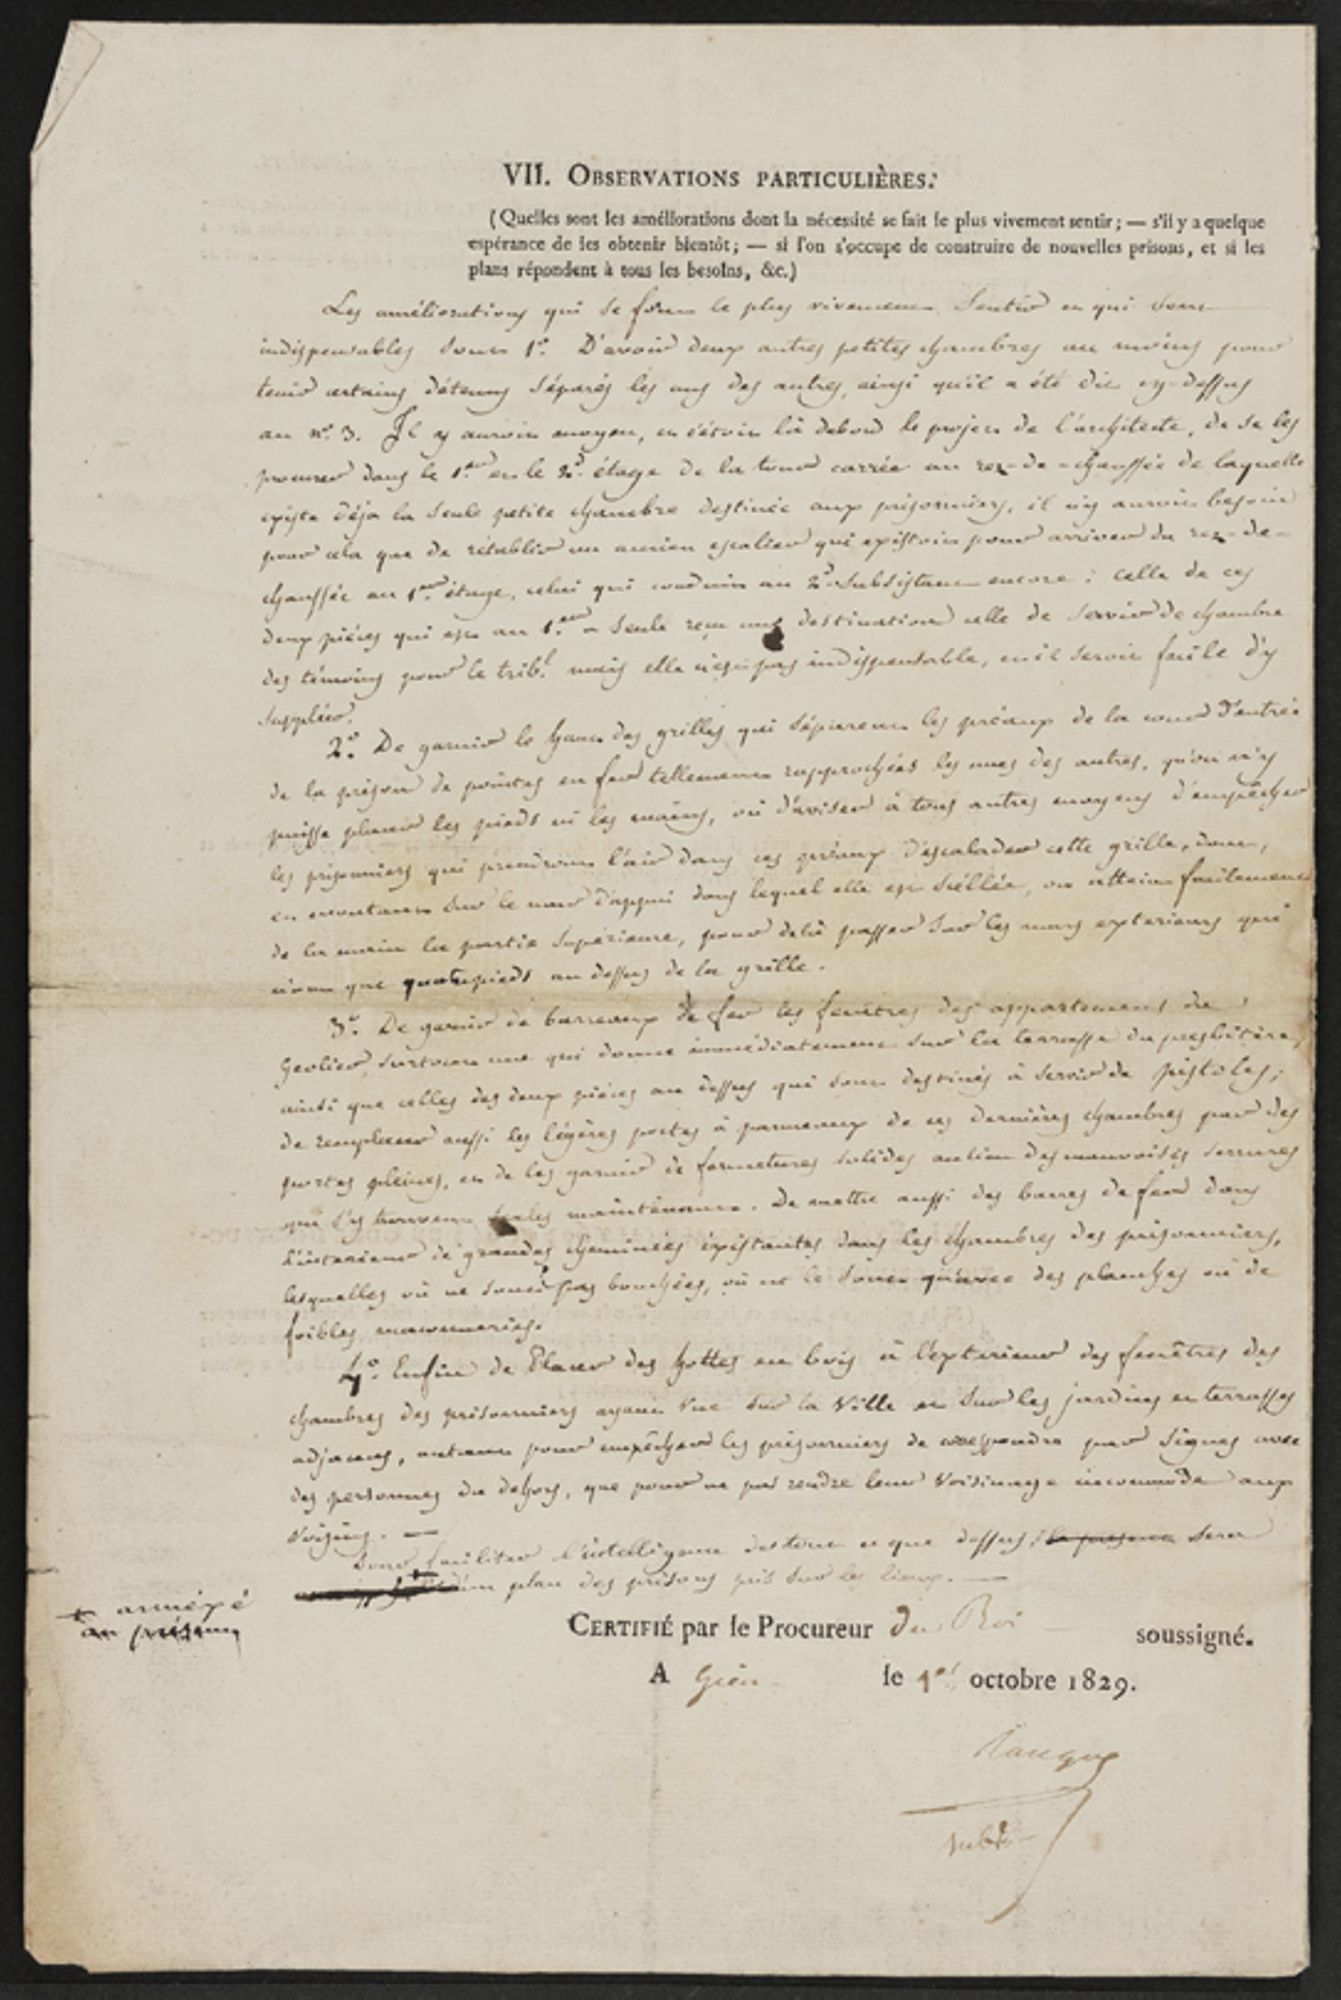 VII. OBSERVATIONS PARTICULIÈRES.
(Quelles sont les améliorations dont la nécessité se fait le plus vivement sentir; — s'il y a quelque
espérance de les obtenir bientôt; — si l'on s'occupe de construire de nouvelles prisons, et si les
plans répondent à tous les besoins, &c.)
Les améliorations qui se font le plus vivement sentir et qui sont
indispensables sont 1° D'avoir deux autres petites chambres au moins pour
tenir certains détenus séparés les uns des autres, ainsi qu'il a été dit cy-dessus
au n° 3. Il y auroit moyen, et c'étoit là dabord le projet de l'architecte, de se les
procurer dans le 1er et le 2d étage de la tour carrée au rez-de-chaussée de laquelle
existe déja la seule petite chambre destinée aux prisonniers, il n'y auroit besoin
pour cela que de rétablir un ancien escalier qui existoit pour arriver du rez-de-
chaussée au 1er étage, celui qui conduit au 2d subsistant encore : celle de ces
deux pièces qui est au 1er a seule reçu une destination celle de servir de chambre
des témoins pour le tribl mais elle n'est pas indispensable, et il seroit facile d'y
suppléer.
2° De garnir le haut des grilles qui séparent les préaux de la cour d'entrée
de la prison de pointes en fer tellement rapprochées les unes des autres, qu'on n'y
puisse placer les pieds ni les mains, ou d'aviser à tous autres moyens d'empêcher
les prisonniers qui prendront l'air dans ces préaux d'escalader cette grille, dont,
en montant sur le mur d'appui dans lequel elle est scéllée, on atteint facilement
de la main la partie supérieure, pour delà passer sur les murs exterieurs qui
n'ont que quatre pieds au dessus de la grille.
3° De garnir de barreaux de fer les fenêtres des appartements du
Geolier, surtout une qui donne immédiatement sur la terrasse du presbitère,
ainsi que celles des deux pièces au dessus qui sont destinés à servir de pistoles;
de remplacer aussi les légères portes à panneaux de ces dernières chambres par des
portes pleines, et de les garnir de fermetures solides au lieu des mauvaises serrures
qui s'y trouvent seules maintenant. De mettre aussi des barres de fer dans
l'interieur de grandes cheminées éxistantes dans les chambres des prisonniers,
lesquelles ou ne sont pas bouchées, ou ne le sont qu'avec des planches ou de
foibles maconneries.
4° Enfin de Placer des hottes en bois à l'exterieur des fenêtres des
chambres des prisonniers ayant vue sur la Ville et sur les jardins en terrasses
adjacens, autant pour empêcher les prisonniers de correspondre par signes avec
des personnes du dehors, que pour ne pas rendre leur voisinage incommode aux
voisins. —
Pour faciliter l'intelligence de tout ce que dessus, sera
un plan des prisons pris sur les lieux. —
+ annéxé
au présent
CERTIFIÉ par le Procureur du Roi soussigné.
A Gien le 1er octobre 1829.
subt